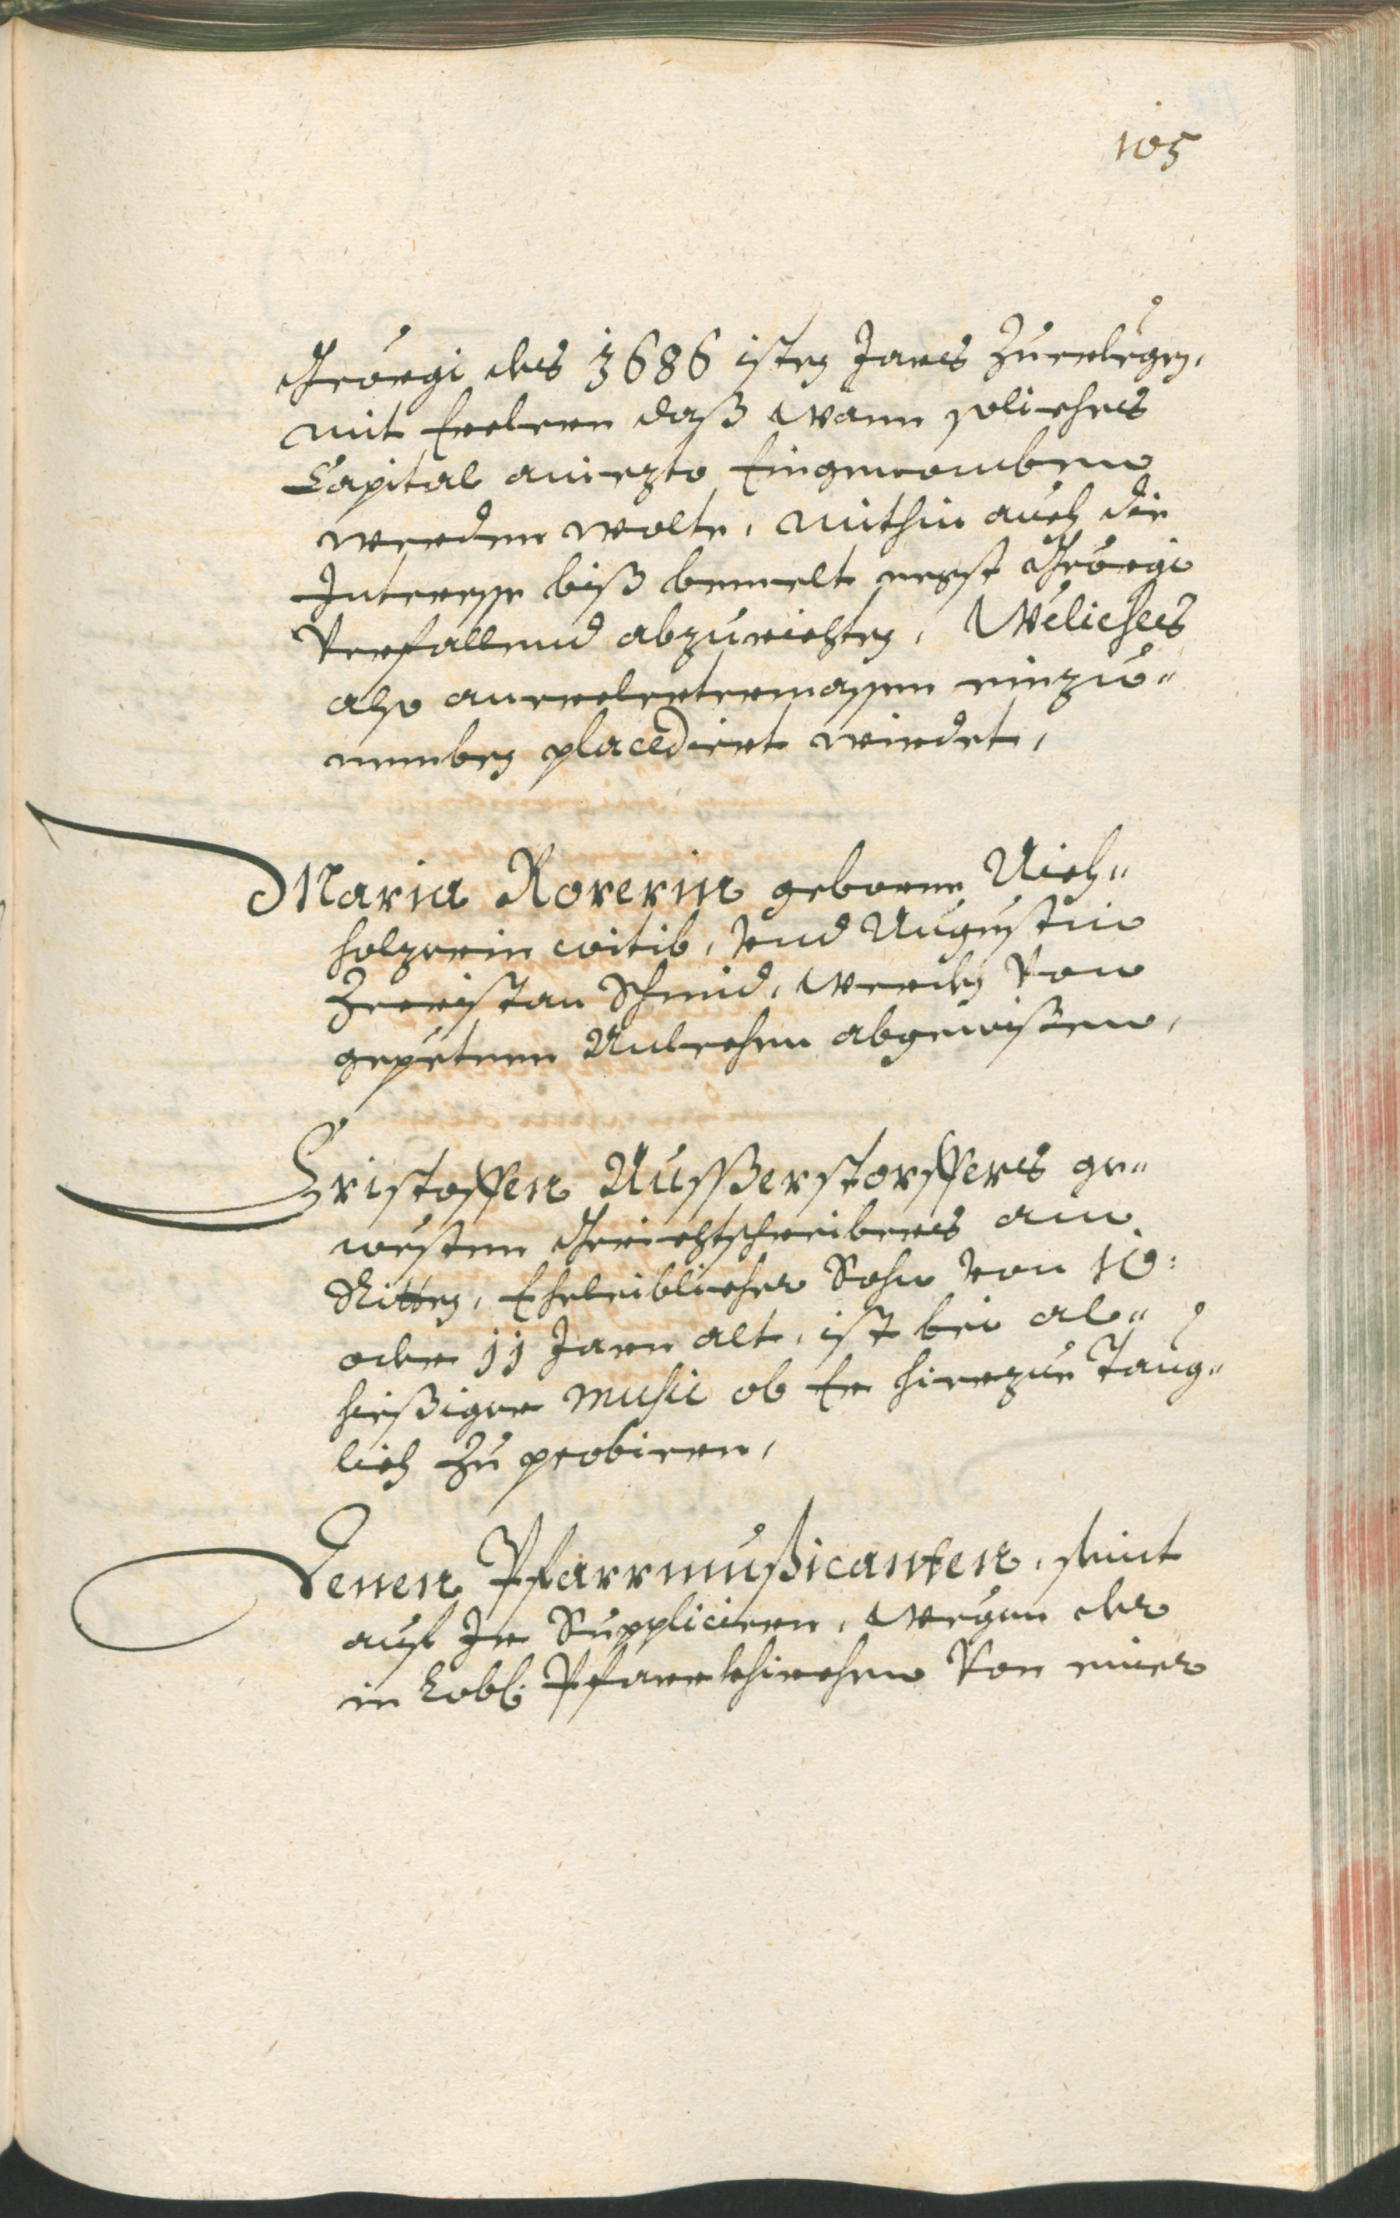 105
Geörgi des 1686 isten Jars zuerlegen,
mit Erclern daß wann soliches
Capital aniezto Eingenomben
werden wolte, mithin auch die
Interesse biß bemelt negst Geörgi
Verfallend abzurichten, Weliches
also anerclertermassen einzu„
nemben placediert wirdet,
Maria Rorerin geborne Aich„
holzerin witib, vnd Augustin
Zerristan Schmid, werden von
gepetnem Anlechen abgewißen,
Cristoffen Aussßerstorffers ge„
westen Gerichtschreibers am
Ritten, Eheleiblicher Sohn von 10:
oder 11 Jaren alt, ist bei al„
hießiger Music ob Er hierzue Taug„
lich zu probiren,
Denen Pfarrmußicanten, seint
auf Ir Suppliciren, wegen der
in Lobl: Pfarrkhirchen von einer